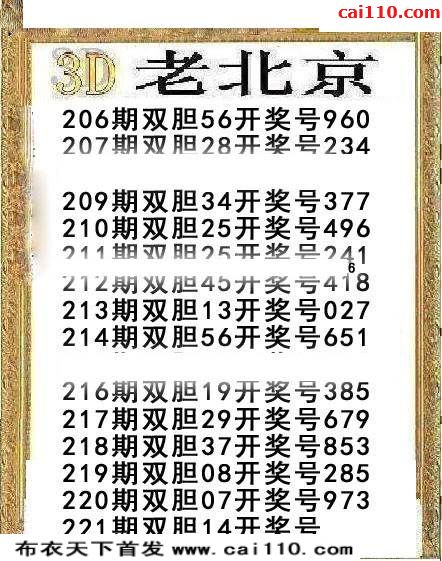 cai110.com
3D 老北京
206期双胆56开奖号960
207期双胆28开奖号234
209期双胆34开奖号377
210期双胆25开奖号496
211期双胆25开奖号241
6
212期双胆45开奖号418
213期双胆13开奖号027
214期双胆56开奖号651
216期双胆19开奖号385
217期双胆29开奖号679
218期双胆37开奖号853
219期双胆08开奖号285
220期双胆07开奖号973
221期双胆14开奖号
布衣天下首发 www.cai110.com